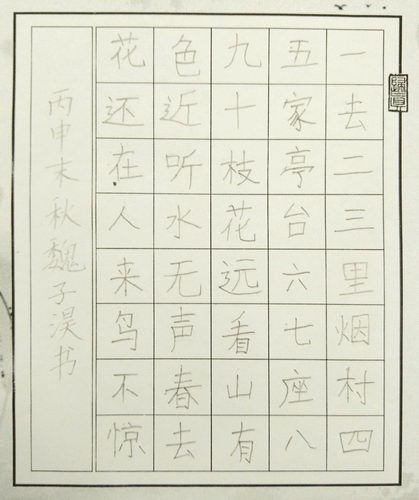 一去二三里烟村四
五家亭台六七座八
九十枝花远看山有
色近听水无声春去
花还在人来鸟不惊
丙申末秋魏子淏书